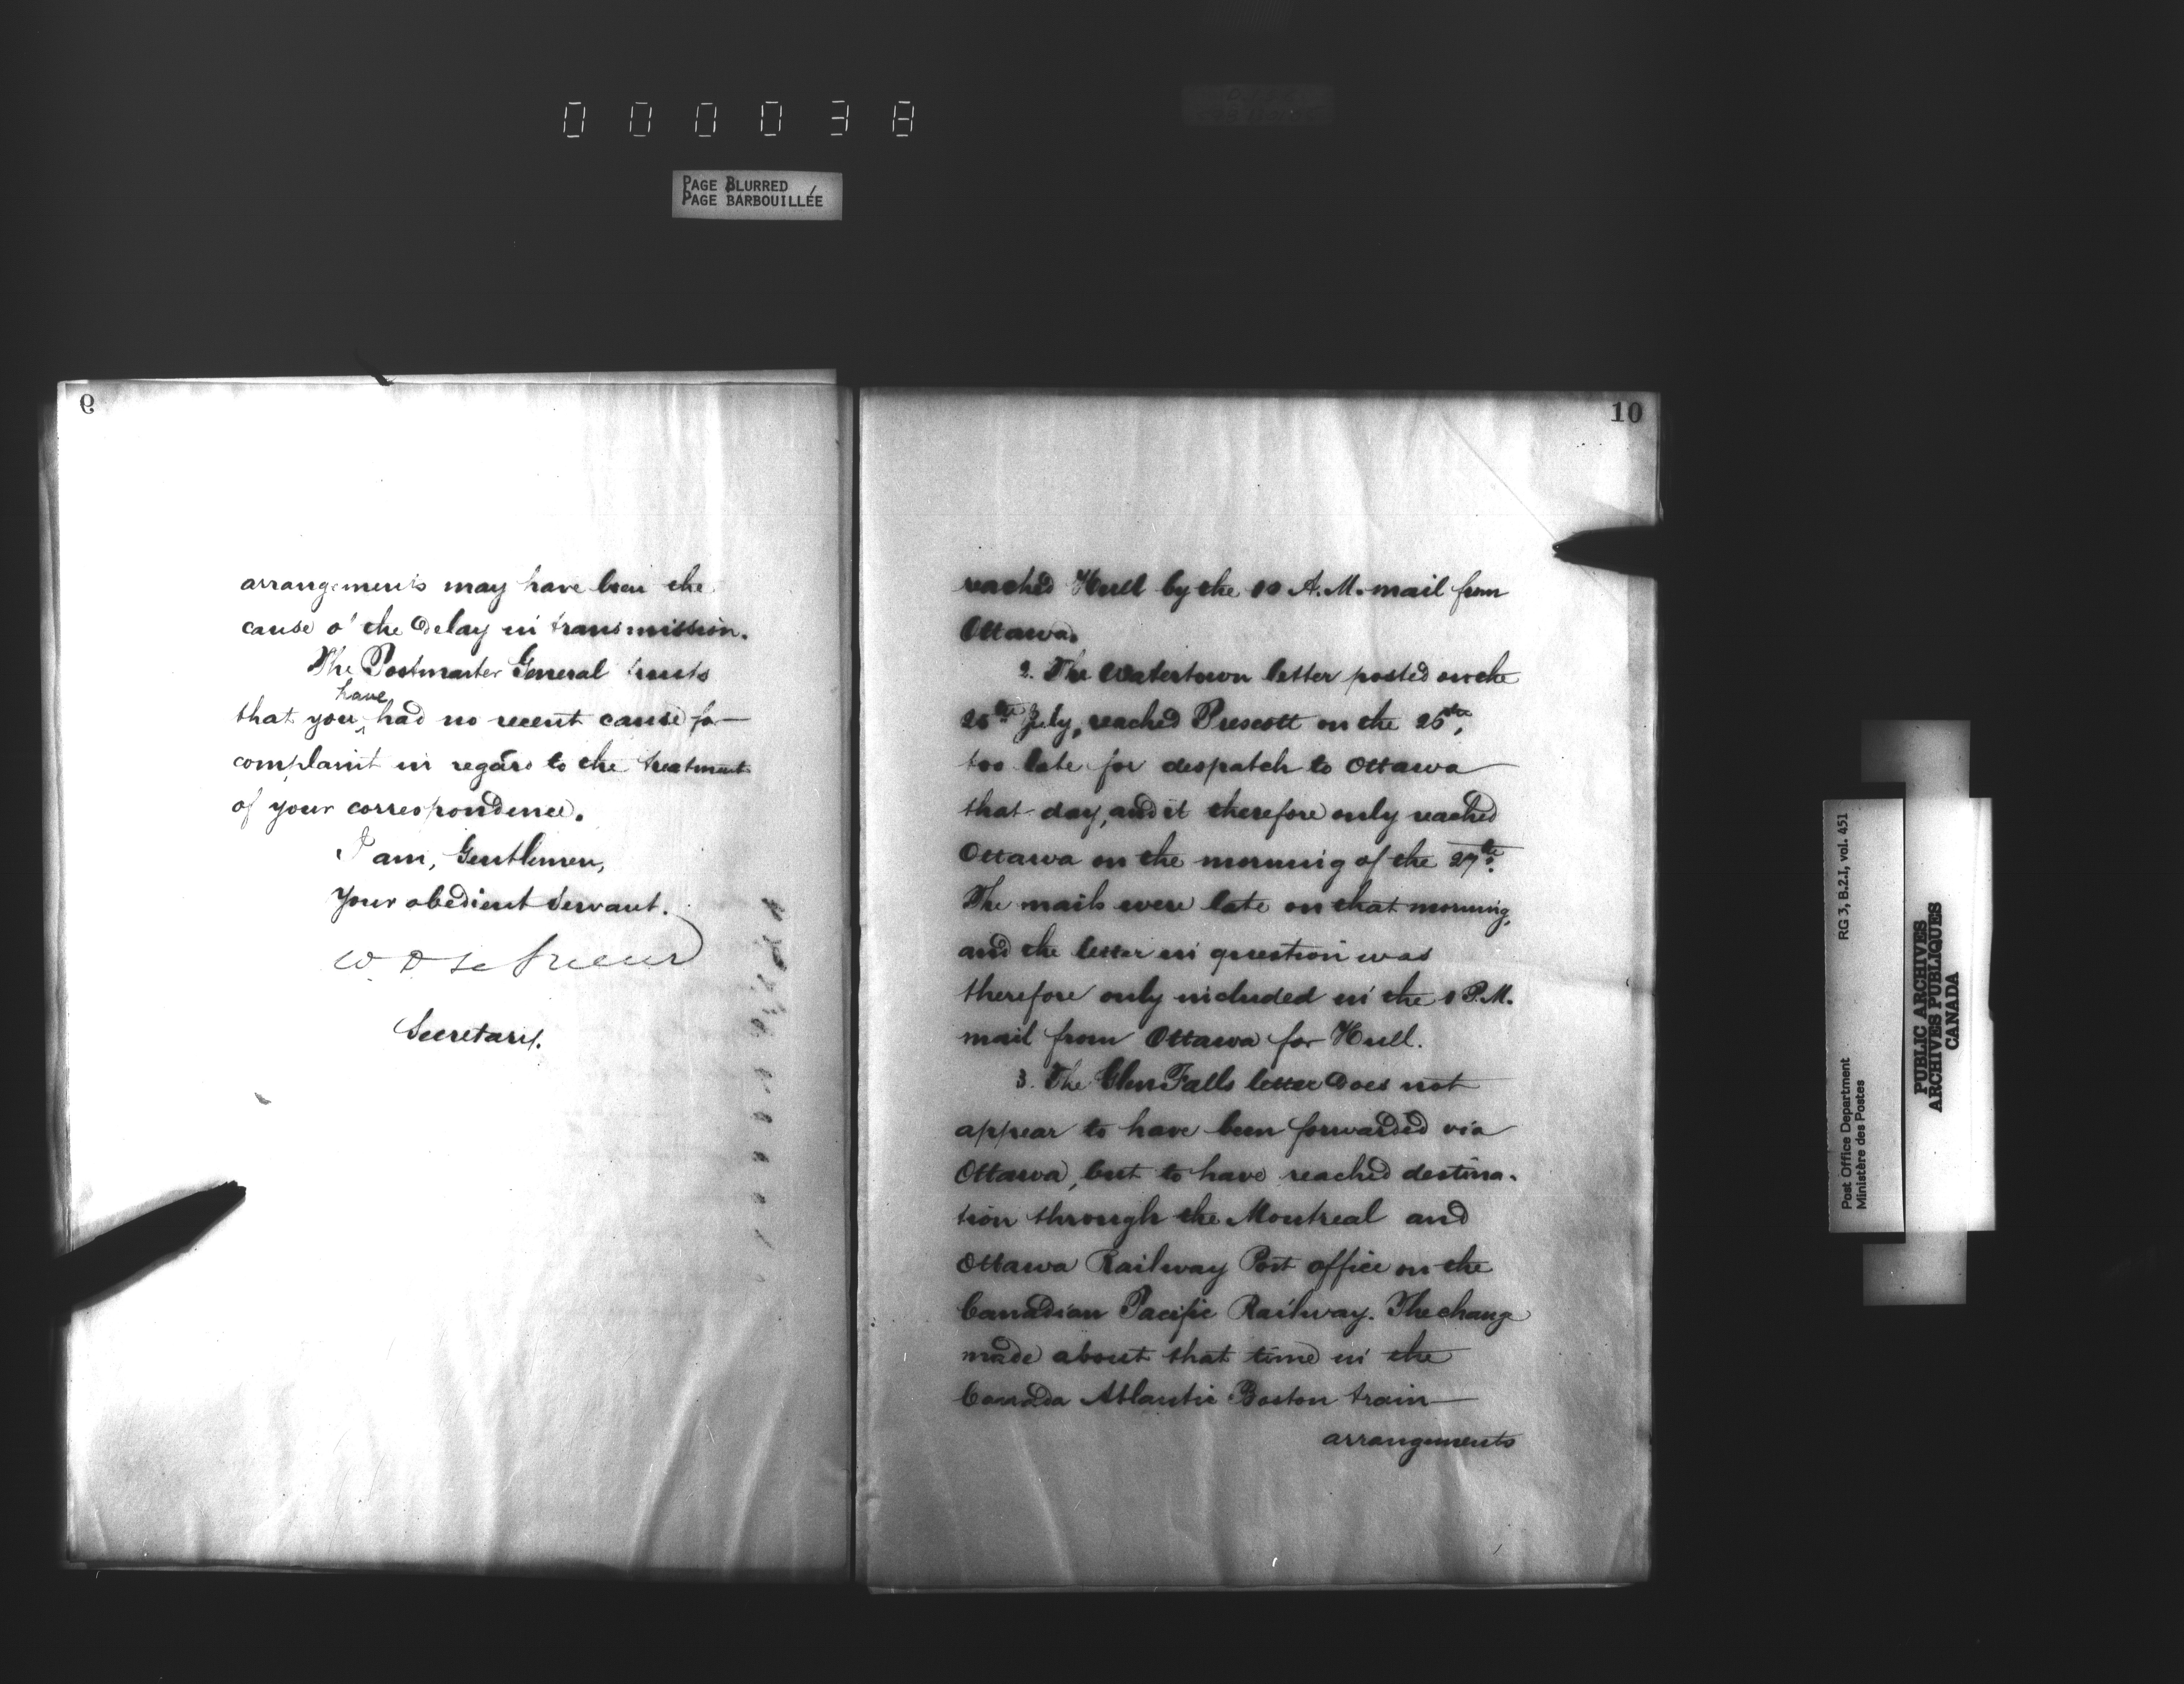 000038
PAGE BLURRED
PAGE BARBOUILLÉE
9
arrangements may have been the
cause o' the delay in transmission.
The Postmaster General trusts
have
that you ‸ had no recent cause for
complaint in regard to the treatment
of your correspondence.
I am, Gentlemen,
Your obedient Servant.
W D Le Sueur
Secretary.
10
reached Hull by the 10 A.M. mail from
Ottawa.
2. The Watertown letter posted on the
25th July, reached Prescott on the 26th,
too late for despatch to Ottawa
that day, and it therefore only reached
Ottawa on the morning of the 27th.
The mails were late on that morning,
and the letter in question was
therefore only included in the 1 P.M.
mail from Ottawa for Hull.
3. The Glen Falls letter does not
appear to have been forwarded via
Ottawa, but to have reached destina-
tion through the Montreal and
Ottawa Railway Post office on the
Canadian Pacific Railway. The change
made about that time in the
Canada Atlantic Boston train
arrangements
Post Office Department
Ministère des Postes
RG 3, B.2.I, vol. 451
PUBLIC ARCHIVES
ARCHIVES PUBLIQUES
CANADA